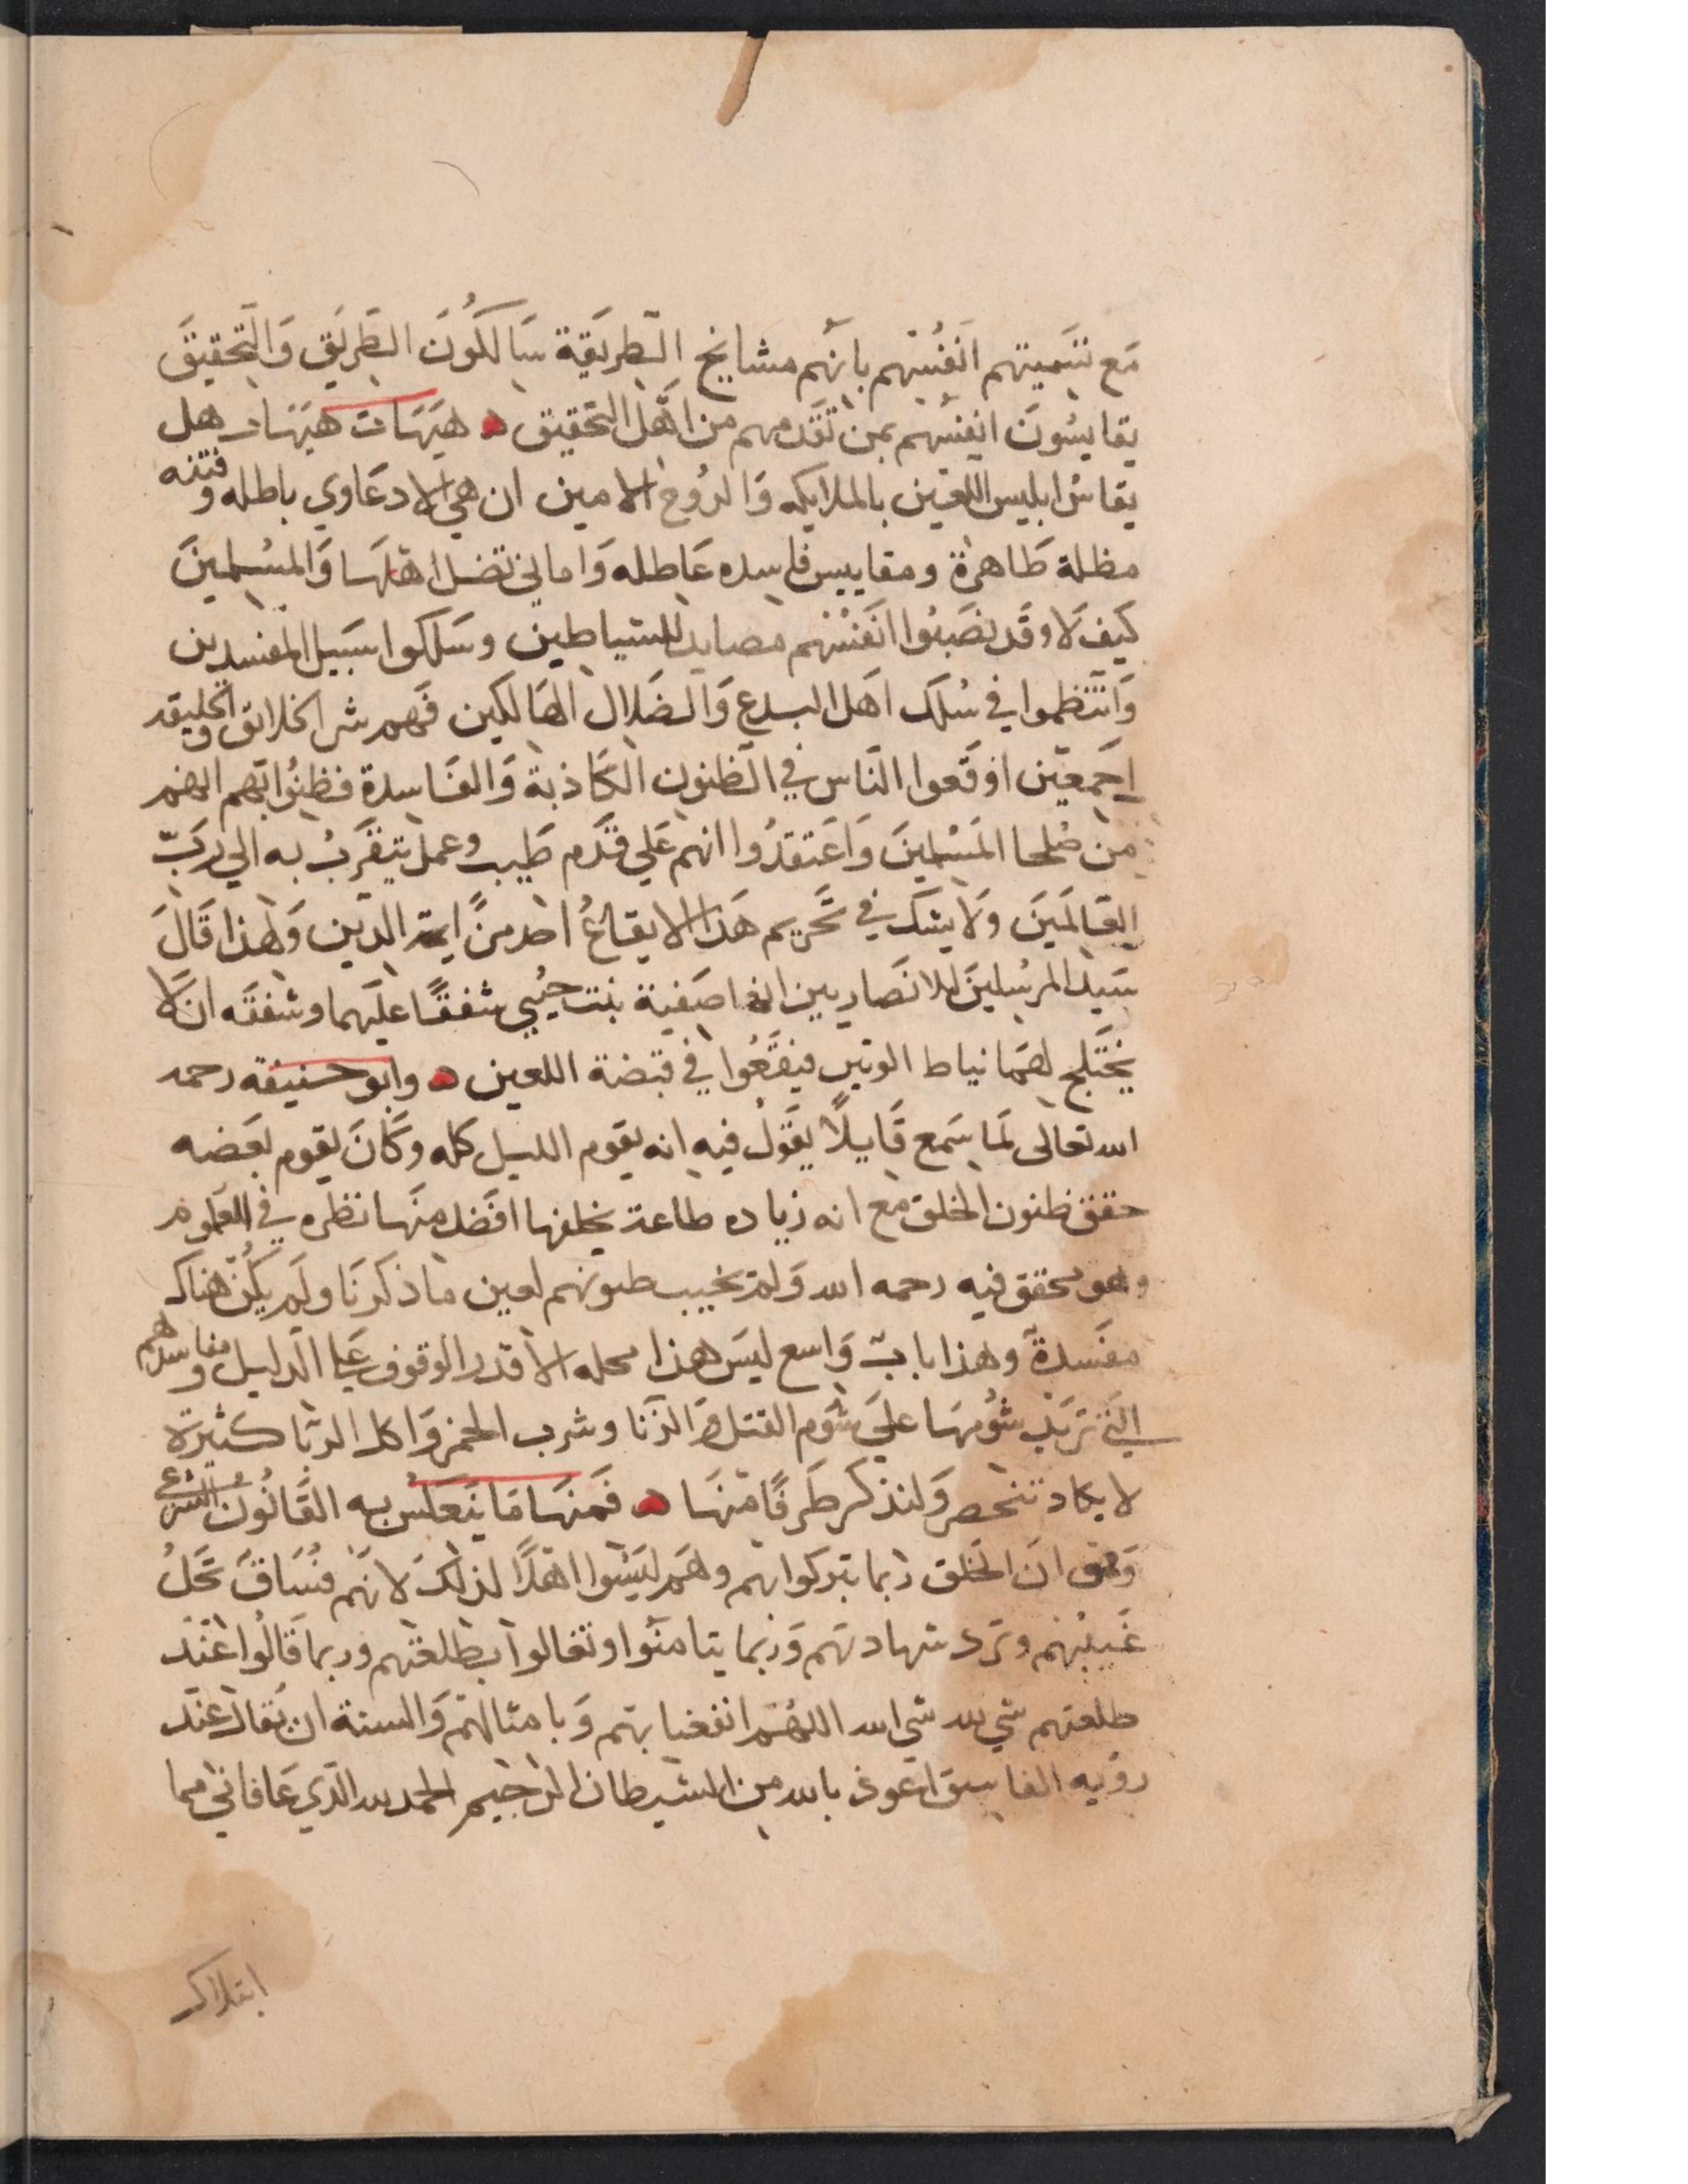 مَع تسَميتهم انَفُسَهم بانهّم مشايخ الطريقَية سَالكُونَ الطَريَق وَالتَحقيقَ
يقايسُونَ انفسَهم بمن تقَدمهم من اهَل التحَقيق ه هيَهَات هيَهَات هل
يقاسُ ابليس اللعَين بالملايكه وَالروُح الامين ان هي الا دعَاوي باطله وفتنه
مظلمة ظَاهرة ومقاييس فاسده عَاطله وَاماني تضل اهَلهَا وَالمسُلمينَ
كيَف لَا وقَد نصَبُوا انَفسُهم مصايد للشياطين وسَلكوا سَبيل المفسدين
وَانتَظموا في سُلَك اهَل البدع وَالضَلال الهَالكين فَهم شر الخلايق والخليقه
اجَمعيَن اوقَعوا الناس في الظنون الكَاذبة وَالفَاسدة فظنوُا بهم انهم
من صُلحا المَسُلمينَ وَاعَتقدُوا انهم عَلي قَدَم طَيب وعمل يتقَرَبُ به الي رَبّ
العَالمَينَ ولَا يشك في تَحَريم هَذا الايقاعُ احد منً ايمة الدين وَلهذا قَالَ
سَيد المرسُلينَ للانصَاريين انها صَفية بنت حيُيي شفقًا عليَهما وشفقَه ان لَا
يَختَلج لهمَا نياط الوتين فيقَعُوا في قبضة اللعين ه وابو حنيفه رحمه
الله تعالى لمَا سَمع قَايلًا يقَولُ فيه انه يقوم الليل كله وكَانَ يقوم بعَضه
حقق ظنون الخلق مع انه زياده طاعة يخلفها افضَل منهَا نظره في العَلوم
وهو محقق فيه رحمه الله وَلم يخيب ظنونهم لعين ما ذكرنَا ولَم يكُن هناك
مفَسدة وهذا بابٌ وَاسع ليسَ هذا محله الا قدر الوقوف عَلي الدليل ومفاسدهم
التَي تزيَد شُومهَا عليَ شوم القتل وَالزنا وشرب الخمر وَاكل الربَا كثيرة
لا يكاد تنحصر وَلنذكر طَرفًا منهَا ه فَمنهَا مَا ينَعَكسُ به القَانوُن الشرعي
وَهو انَ الخَلق ربما يتبركوا بهم وهَم ليَسُوا اهَلًا لذلكَ لانهَم فسُاقَ تَحَلُ
غَيبتُهم وتَرد شهادتهَم وَربما يتامنوا وتغالوا بطلعَتهم وربما قَالوُا عنَد
طلعتهم شي لله شي الله اللهُم انفعَنا بهَم وَبامثالهَم وَالسنة ان يقَال عنَد
رؤيه الفاسق اعَوذ بالله من الشيطان الرجيم الحمد لله الذَي عَافاني مما
ابتلاك